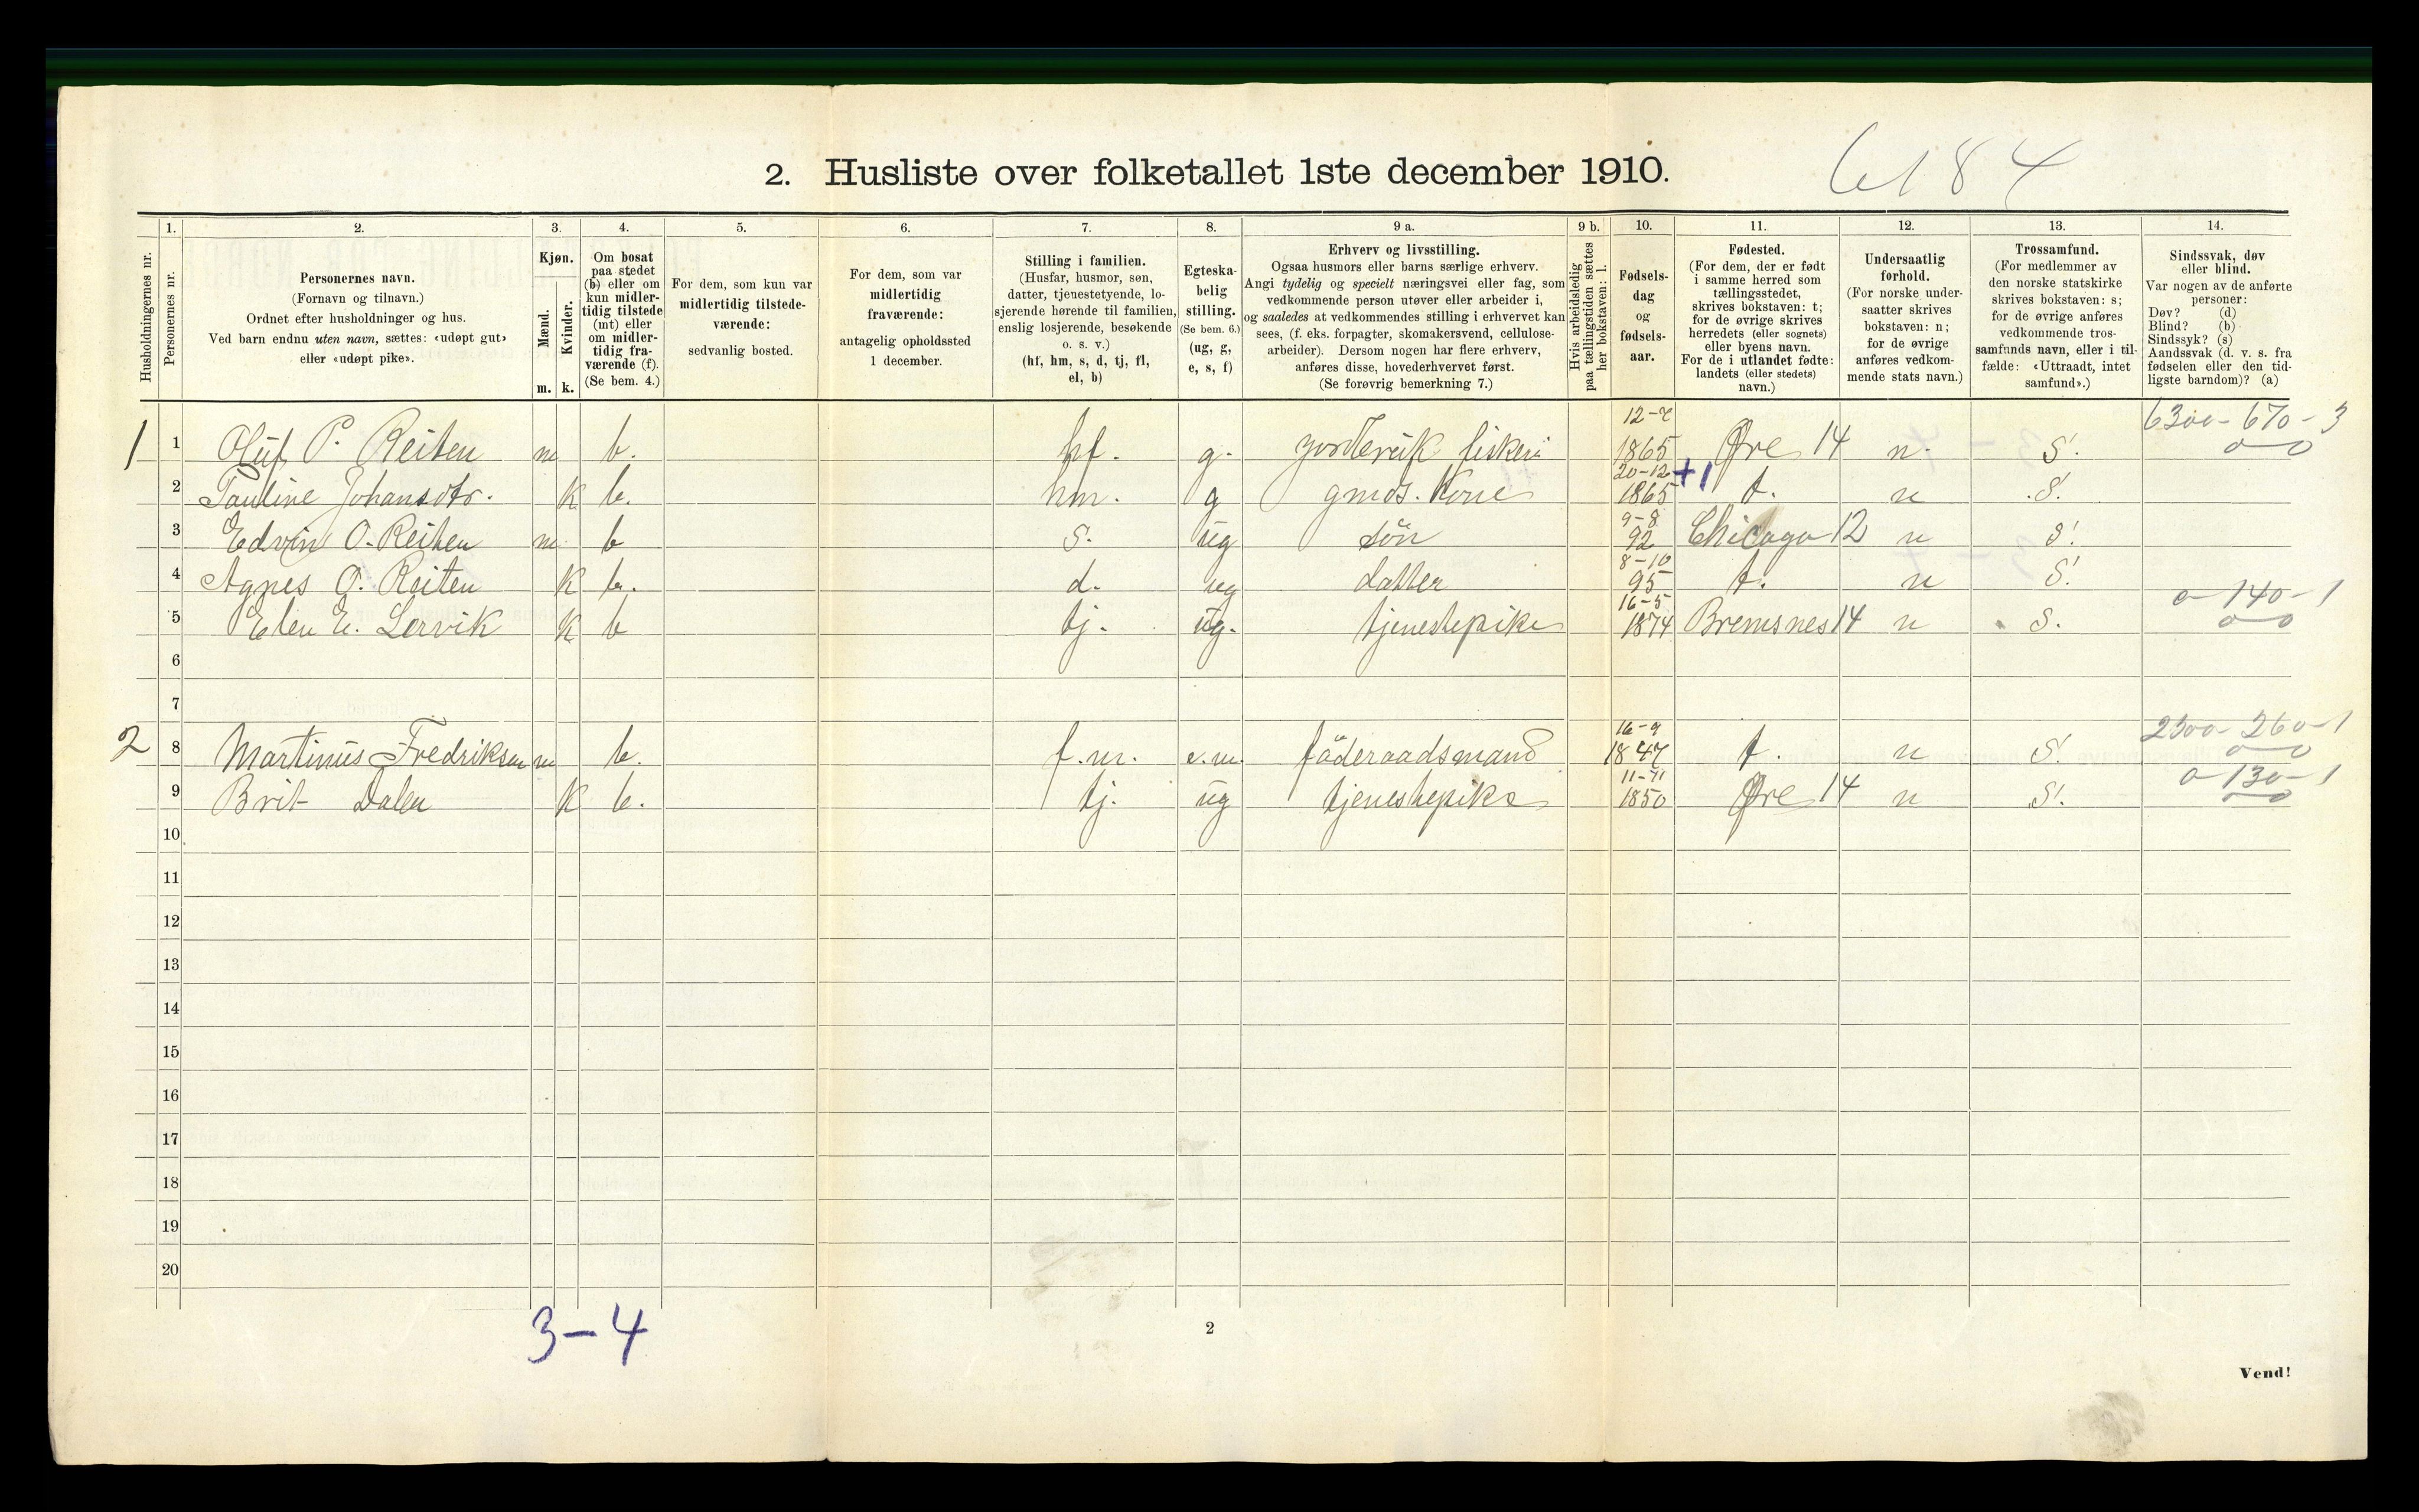 2. Husliste over folketallet 1ste december 1910.
6184
Husholdningernes nr.
1.
Personernes nr.
2.
Personernes navn.
(Fornavn og tilnavn.)
Ordnet efter husholdninger og hus.
Ved barn endnu uten navn, sættes: «udøpt gut»
eller «udøpt pike».
3.
Kjøn.
Mænd.
Kvinder.
m. k.
4.
Om bosat
paa stedet
(b) eller om
kun midler-
tidig tilstede
(mt) eller
om midler-
tidig fra-
værende (f).
(Se bem. 4.)
5.
For dem, som kun var
midlertidig tilstede-
værende:
sedvanlig bosted.
6.
For dem, som var
midlertidig
fraværende:
antagelig opholdssted
1 december.
7.
Stilling i familien.
(Husfar, husmor, søn,
datter, tjenestetyende, lo-
sjerende hørende til familien,
enslig losjerende, besøkende
o. s. v.)
(hf, hm, s, d, tj, fl,
el, b)
8.
Egteska-
belig
stilling.
(Se bem. 6.)
(ug, g,
e, s, f)
9 a.
Erhverv og livsstilling.
Ogsaa husmors eller barns særlige erhverv.
Angi tydelig og specielt næringsvei eller fag, som
vedkommende person utøver eller arbeider i,
og saaledes at vedkommendes stilling i erhvervet kan
sees, (f. eks. forpagter, skomakersvend, cellulose-
arbeider). Dersom nogen har flere erhverv,
anføres disse, hovederhvervet først.
(Se forøvrig bemerkning 7.)
9 b.
Hvis arbeidsledig
paa tællingstiden sættes
her bokstaven: l.
10.
Fødsels-
dag
og
fødsels-
aar.
11.
Fødested.
(For dem, der er født
i samme herred som
tællingsstedet,
skrives bokstaven: t;
for de øvrige skrives
herredets (eller sognets)
eller byens navn.
For de i utlandet fødte:
landets (eller stedets)
navn.)
12.
Undersaatlig
forhold.
(For norske under-
saatter skrives
bokstaven: n;
for de øvrige
anføres vedkom-
mende stats navn.)
13.
Trossamfund.
(For medlemmer av
den norske statskirke
skrives bokstaven: s;
for de øvrige anføres
vedkommende tros-
samfunds navn, eller i til-
fælde: «Uttraadt, intet
samfund».)
14.
Sindssvak, døv
eller blind.
Var nogen av de anførte
personer:
Døv? (d)
Blind? (b)
Sindssyk? (s)
Aandssvak (d. v. s. fra
fødselen eller den tid-
ligste barndom)? (a)
1 1 Oluf P. Reiten m b. hf. g. 1865 Øre 14 n. S. 6300-670-3
2 Pauline Johansdtr. K b. hm. g gmds. Kone 20-12 1865 +1 t. n S.
3 Edvin O. Reiten m b S. ug sön 9-8 92 Chicago 12 n S.
4 Agnes O. Reiten K b. d. ug datter 8-10 95 t. n S.
5 Elen E. Lervik K b tj. ug. tjenestepike 16-5 1874 Bremsnes 14 n S. 0-140-1
6
7
2 8 Martinus Fredriksen m b. f.m. e.m. föderaadsmand 16-9 1847 t. n S. 2300-260-1
9 Brit Dalen K b. tj. ug tjenestepike 11-11 1850 Øre 14 n S. 0-130-1
10
11
12
13
14
15
16
17
18
19
20
3-4
2
Vend!